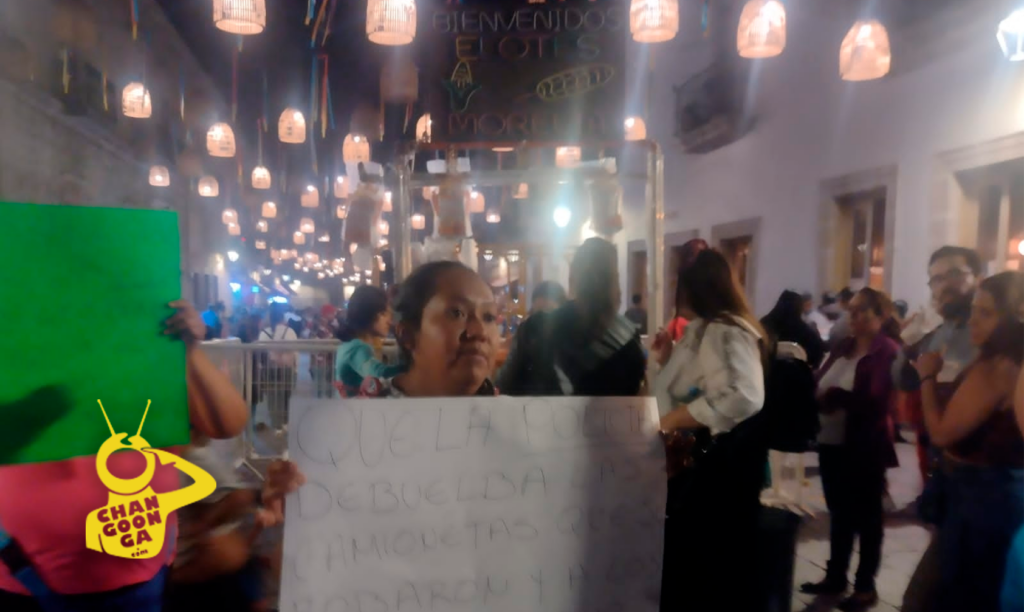 BIENVENIDOS
ELOTES
MORELIA
QUE LA
DEBUELBA
CAMIONETAS QUE
ROBARON Y
CHAN
GOON
GA
.com